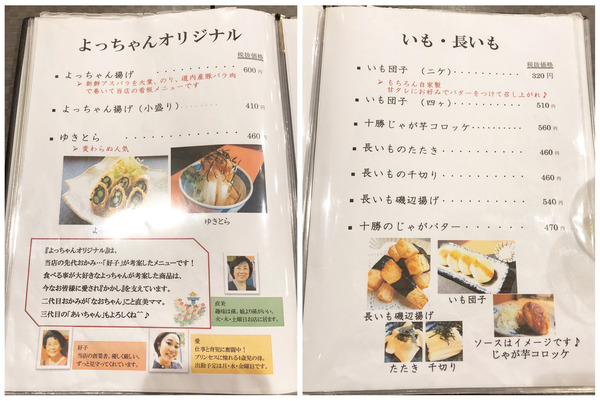 よっちゃんオリジナル
税抜価格
・よっちゃん揚げ‥‥‥‥‥‥‥‥ 600円
➢ 新鮮アスパラを大葉、のり、道内産豚バラ肉
で巻いて当店の看板メニューです
・よっちゃん揚げ(小盛り)‥‥‥‥ 410円
・ゆきとら‥‥‥‥‥‥‥‥ 460円
➢ 変わらぬ人気
ゆきとら
『よっちゃんオリジナル』は、
当店の先代おかみ…「好子」が考案したメニューです!
食べる事が大好きなよっちゃんが考案した商品は、
今なお皆様に愛され『かかし』を支えています。
二代目おかみが「なおちゃん」こと直美ママ。
三代目の「あいちゃん」もよろしくね^^♪
直美
趣味は孫。娘より孫がいい。
火・木・土曜日お店に居ます。
好子
当店の創業者。優しく厳しい。
ずっと見守ってくれています。
愛
仕事と育児に奮闘中!
プリンセスに憧れる4歳児の母。
出勤予定は月・水・金曜日です。
いも・長いも
税抜価格
・いも団子 (ニケ)‥‥‥‥‥‥‥ 320円
➢ もちろん自家製
甘タレにお好みでバターをつけて召し上がれ♪
・いも団子 (四ヶ)‥‥‥‥‥‥‥ 510円
・十勝じゃが芋コロッケ‥‥‥‥‥ 560円
・長いものたたき‥‥‥‥‥‥‥ 460円
・長いもの千切り‥‥‥‥‥‥‥ 460円
・長いも磯辺揚げ‥‥‥‥‥‥‥ 540円
・十勝のじゃがバター‥‥‥‥‥ 470円
いも団子
長いも磯辺揚げ
たたき 千切り
ソースはイメージです♪
じゃが芋コロッケ